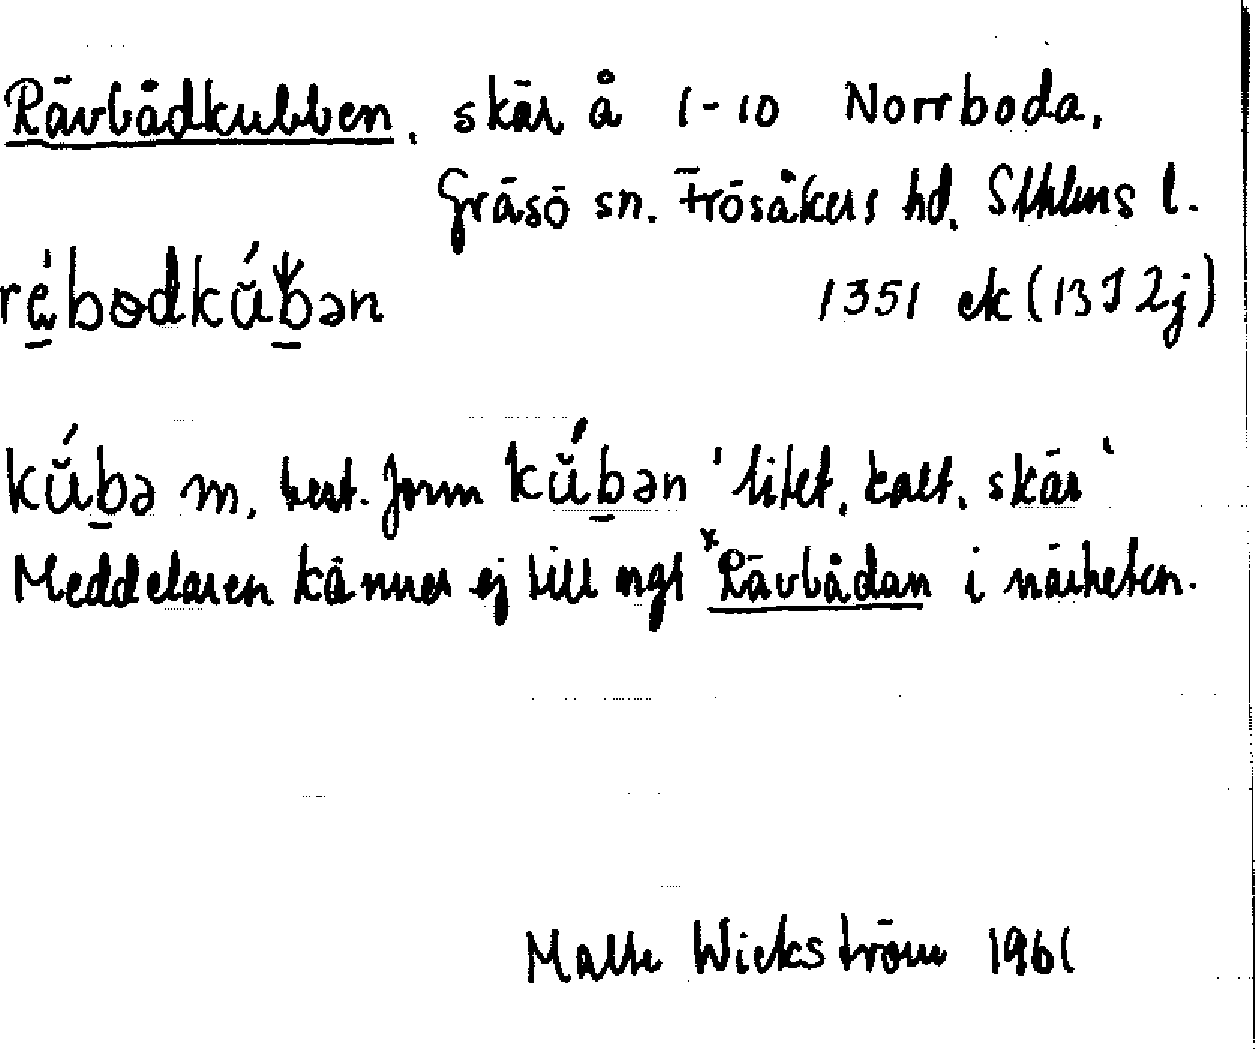 Rävbådkubben, skär å 1-10 Norrboda,
Gräsö sn. Frösåkers hd, Sthlms l.
1351 ek (13I2j)
kŭ́bə m. best. form kŭ́bən 'litet, kalt, skär'
Meddelaren känner ej till ngt *Rävbådan i närheten.
Malte Wickström 1961